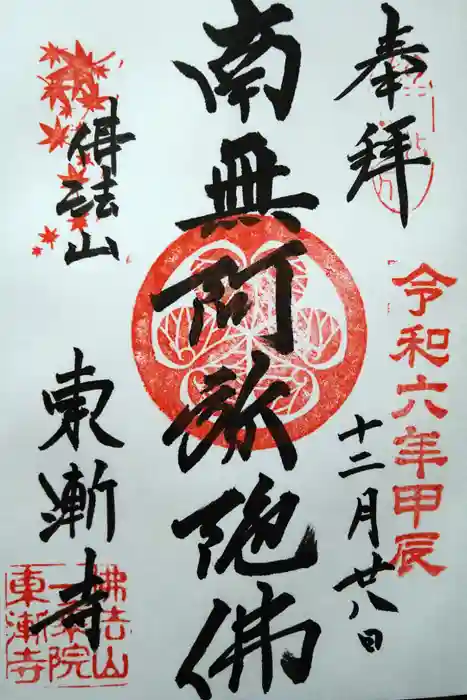 奉拝
令和六年甲辰
十二月廿八日
南無阿弥陀佛
佛法山
東漸寺
佛法山
一乗院
東漸寺